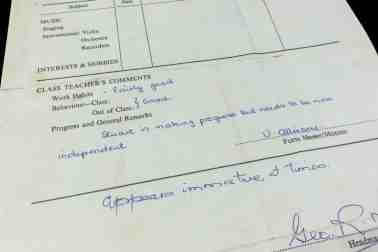 Subject
MUSIC
Singing
Instrumental: Violin
Orchestra
Recorders
INTERESTS & HOBBIES
CLASS TEACHER'S COMMENTS
Work Habits - Fairly good
Behaviour—Class: } Good
Out of Class:
Progress and General Remarks
Stuart is making progress but needs to be more
independent
Form Master/Mistress
Appears immature at times.
Geo. R.
Headm